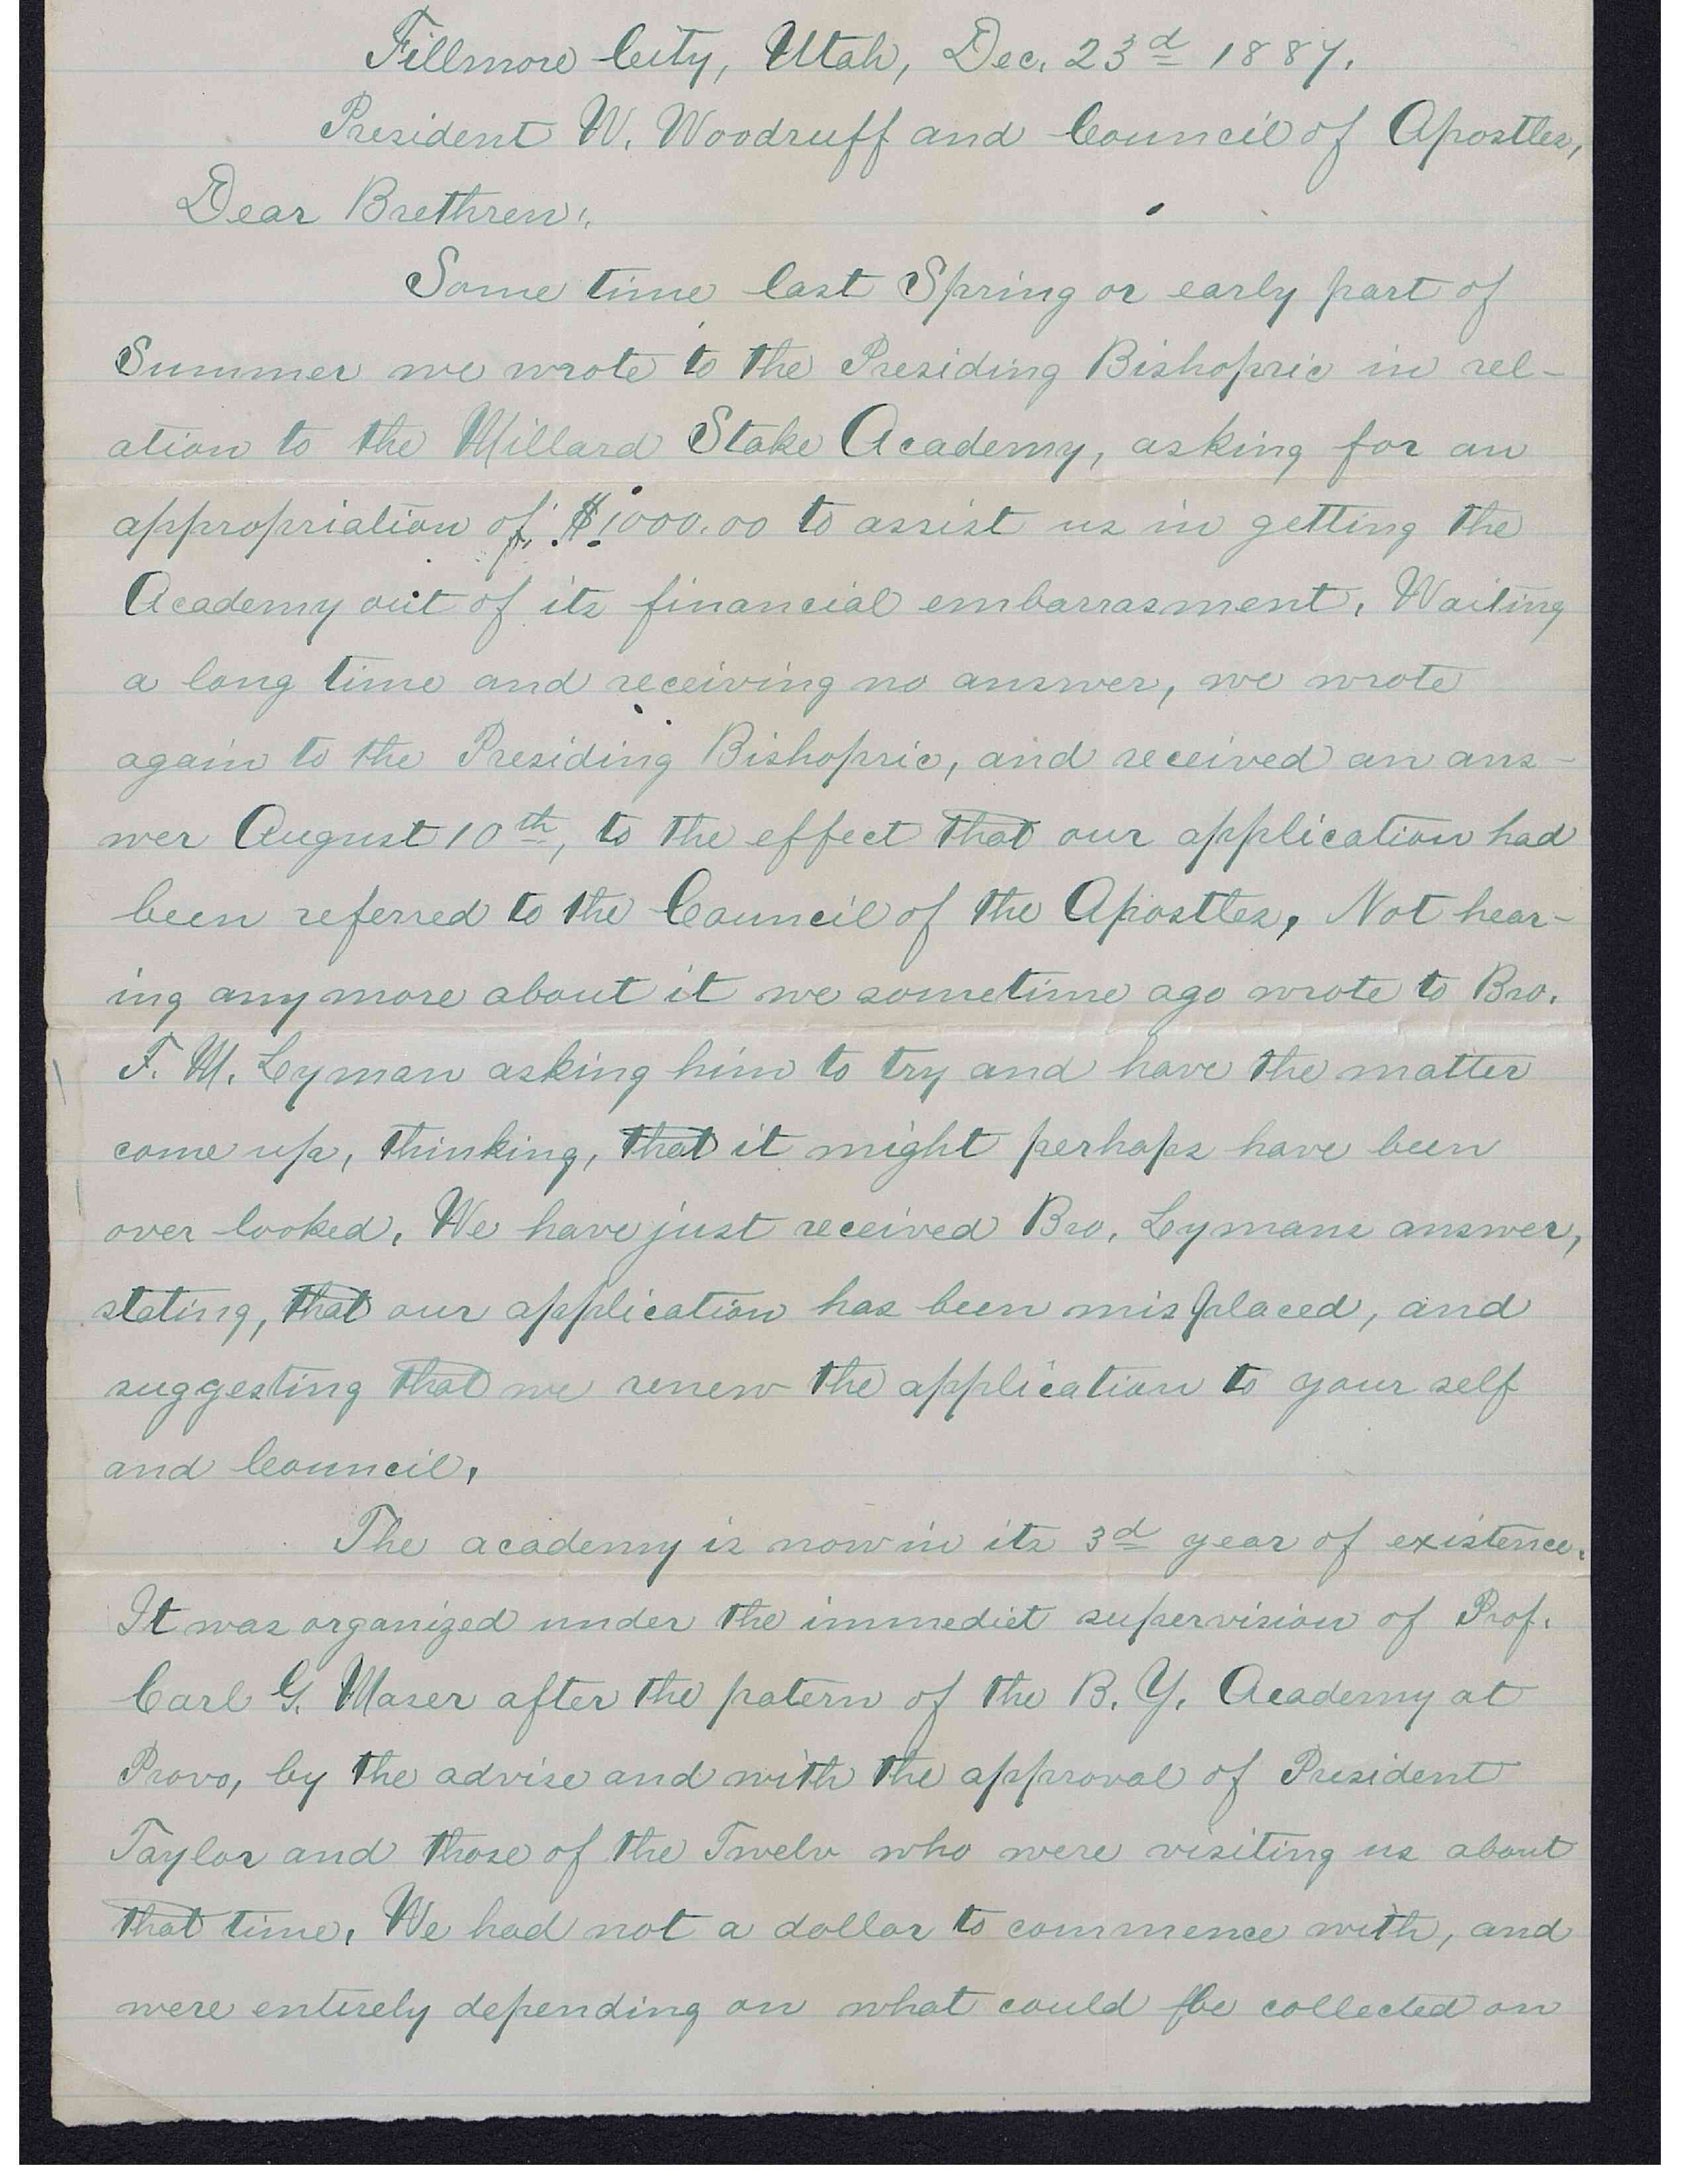 Fillmore City, Utah, Dec. 23d 1887.
President W. Woodruff and Council of Apostles,
Dear Brethren:
Some time last Spring or early part of
Summer we wrote to the Presiding Bishopric in rel-
ation to the Millard Stake Academy, asking for an
appropriation of $1000.00 to assist us in getting the
Academy out of its financial embarrasment. Waiting
a long time and receiving no answer, we wrote
again to the Presiding Bishopric, and received an ans-
wer August 10th, to the effect that our application had
been referred to the Council of the Apostles. Not hear-
ing any more about it we sometime ago wrote to Bro.
F. M. Lyman asking him to try and have the matter
come up, thinking, that it might perhaps have been
over looked. We have just received Bro. Lymans answer,
stating, that our application has been misplaced, and
suggesting that we renew the application to your self
and Council.
The academy is now in its 3d year of existence.
It was organized under the immediet supervision of Prof.
Carl G. Maser after the patern of the B. Y. Academy at
Provo, by the advise and with the approval of President
Taylor and those of the Twelv who were visiting us about
that time. We had not a dollar to commence with, and
were entirely depending on what could be collected on